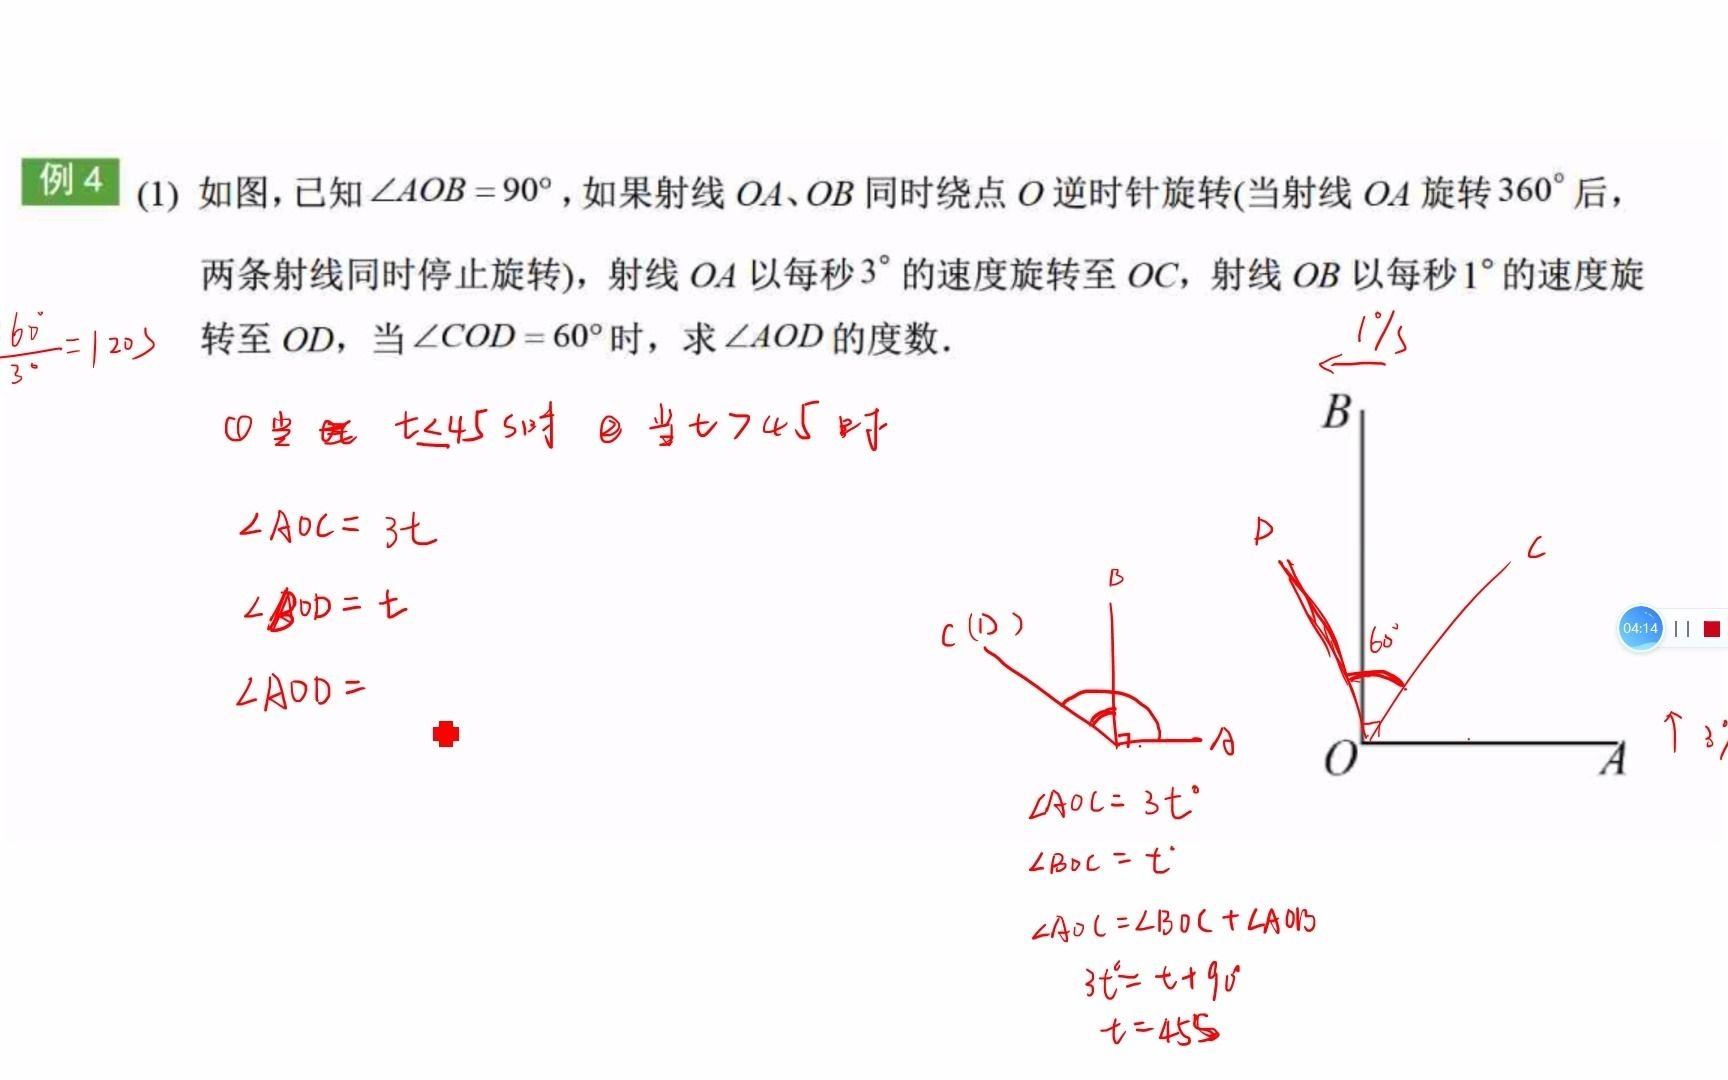 例 4 (1) 如图，已知∠AOB = 90°，如果射线 OA、OB 同时绕点 O 逆时针旋转(当射线 OA 旋转 360° 后，
两条射线同时停止旋转)，射线 OA 以每秒 3° 的速度旋转至 OC，射线 OB 以每秒 1° 的速度旋
转至 OD，当 ∠COD = 60° 时，求 ∠AOD 的度数.
60°/3° = 120s
1°/s
① 当 t≤45s时 ② 当 t>45时
B
∠AOC = 3t
D
C
∠BOD = t
B
C(D)
60°
04:14
∠AOD =
A
O
A
↑ 3°/
∠AOC = 3t°
∠BOC = t°
∠AOC = ∠BOC + ∠AOB
3t° = t + 90°
t = 45s